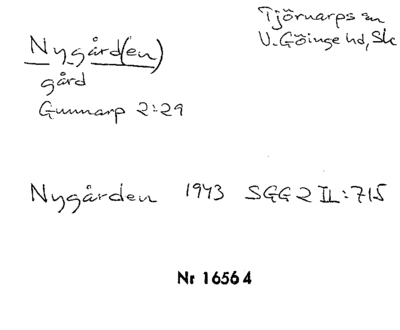 Tjörnarps sn
V. Göinge hd, Sk
Nygård(en)
gård
Gunnarp 2:29
Nygården 1943 SGG 2 II:715
Nr 16564